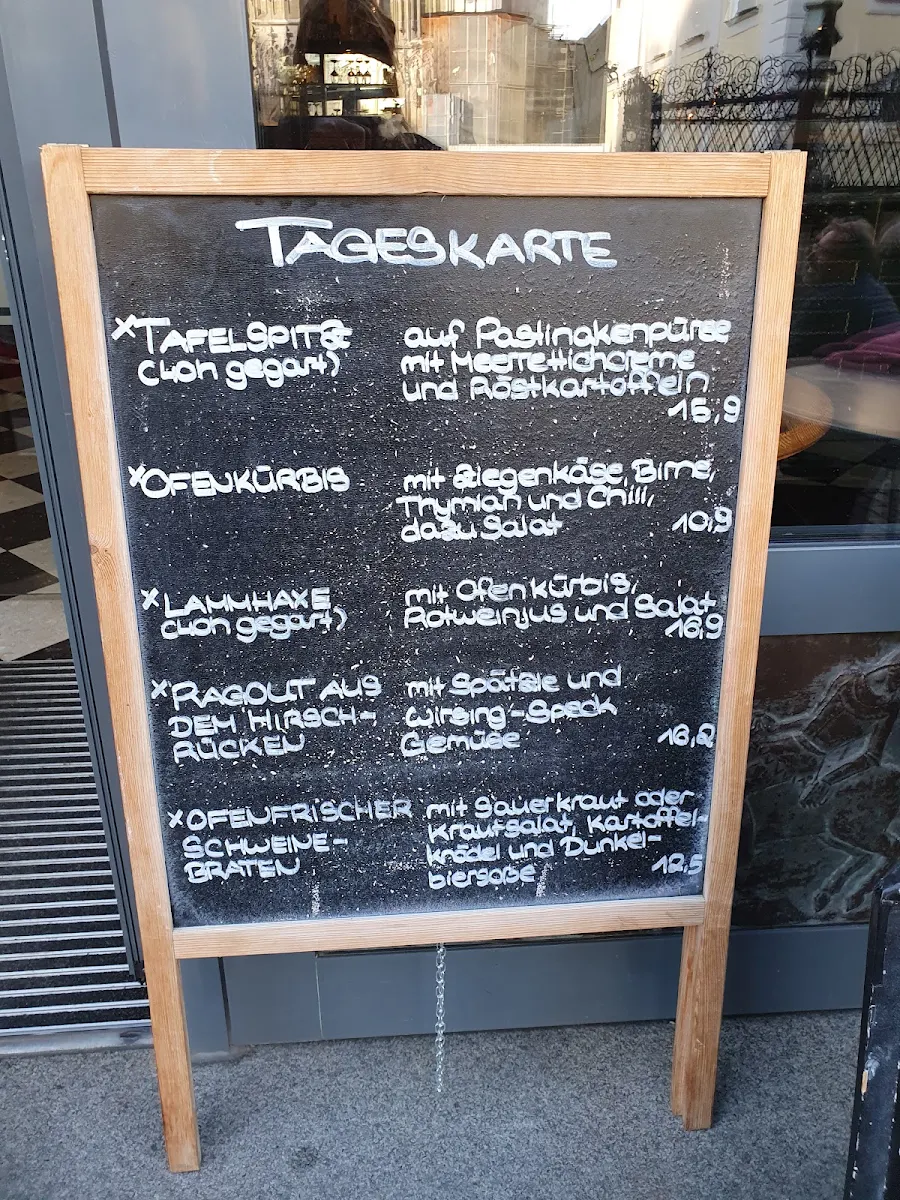 TAGESKARTE
x TAFELSPITZ auf Pastinakenpüree
(40h gegart) mit Meerrettichcreme
und Röstkartoffeln
15,9
x OFENKÜRBIS mit Ziegenkäse, Birne,
Thymian und Chili,
dazu Salat 10,9
x LAMMHAXE mit Ofenkürbis,
(40h gegart) Rotweinjus und Salat
16,9
x RAGOUT AUS mit Spätzle und
DEM HIRSCH- Wirsing-Speck
RÜCKEN Gemüse 16,2
x OFENFRISCHER mit Sauerkraut oder
SCHWEINE- Krautsalat, Kartoffel-
BRATEN knödel und Dunkel-
biersoße 12,5